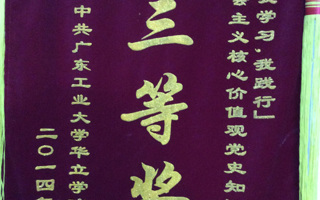 学习,我践行」
会主义核心价值观党史知
三等奖
中共广东工业大学华立学
二〇一四年